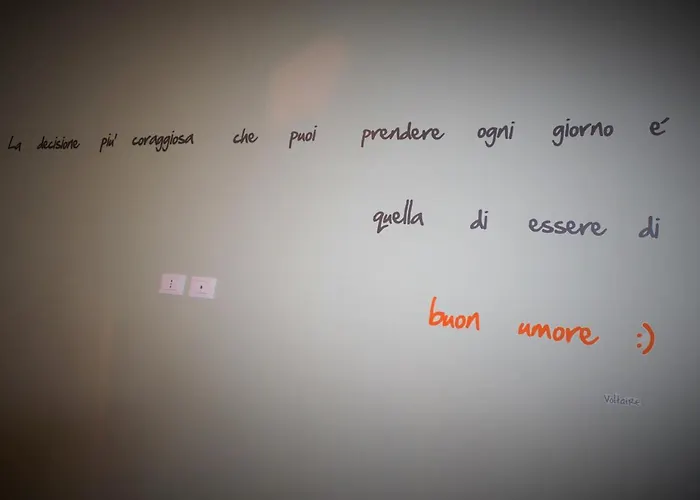 La decisione piu' coraggiosa che puoi prendere ogni giorno e'
quella di essere di
buon umore :)
Voltaire